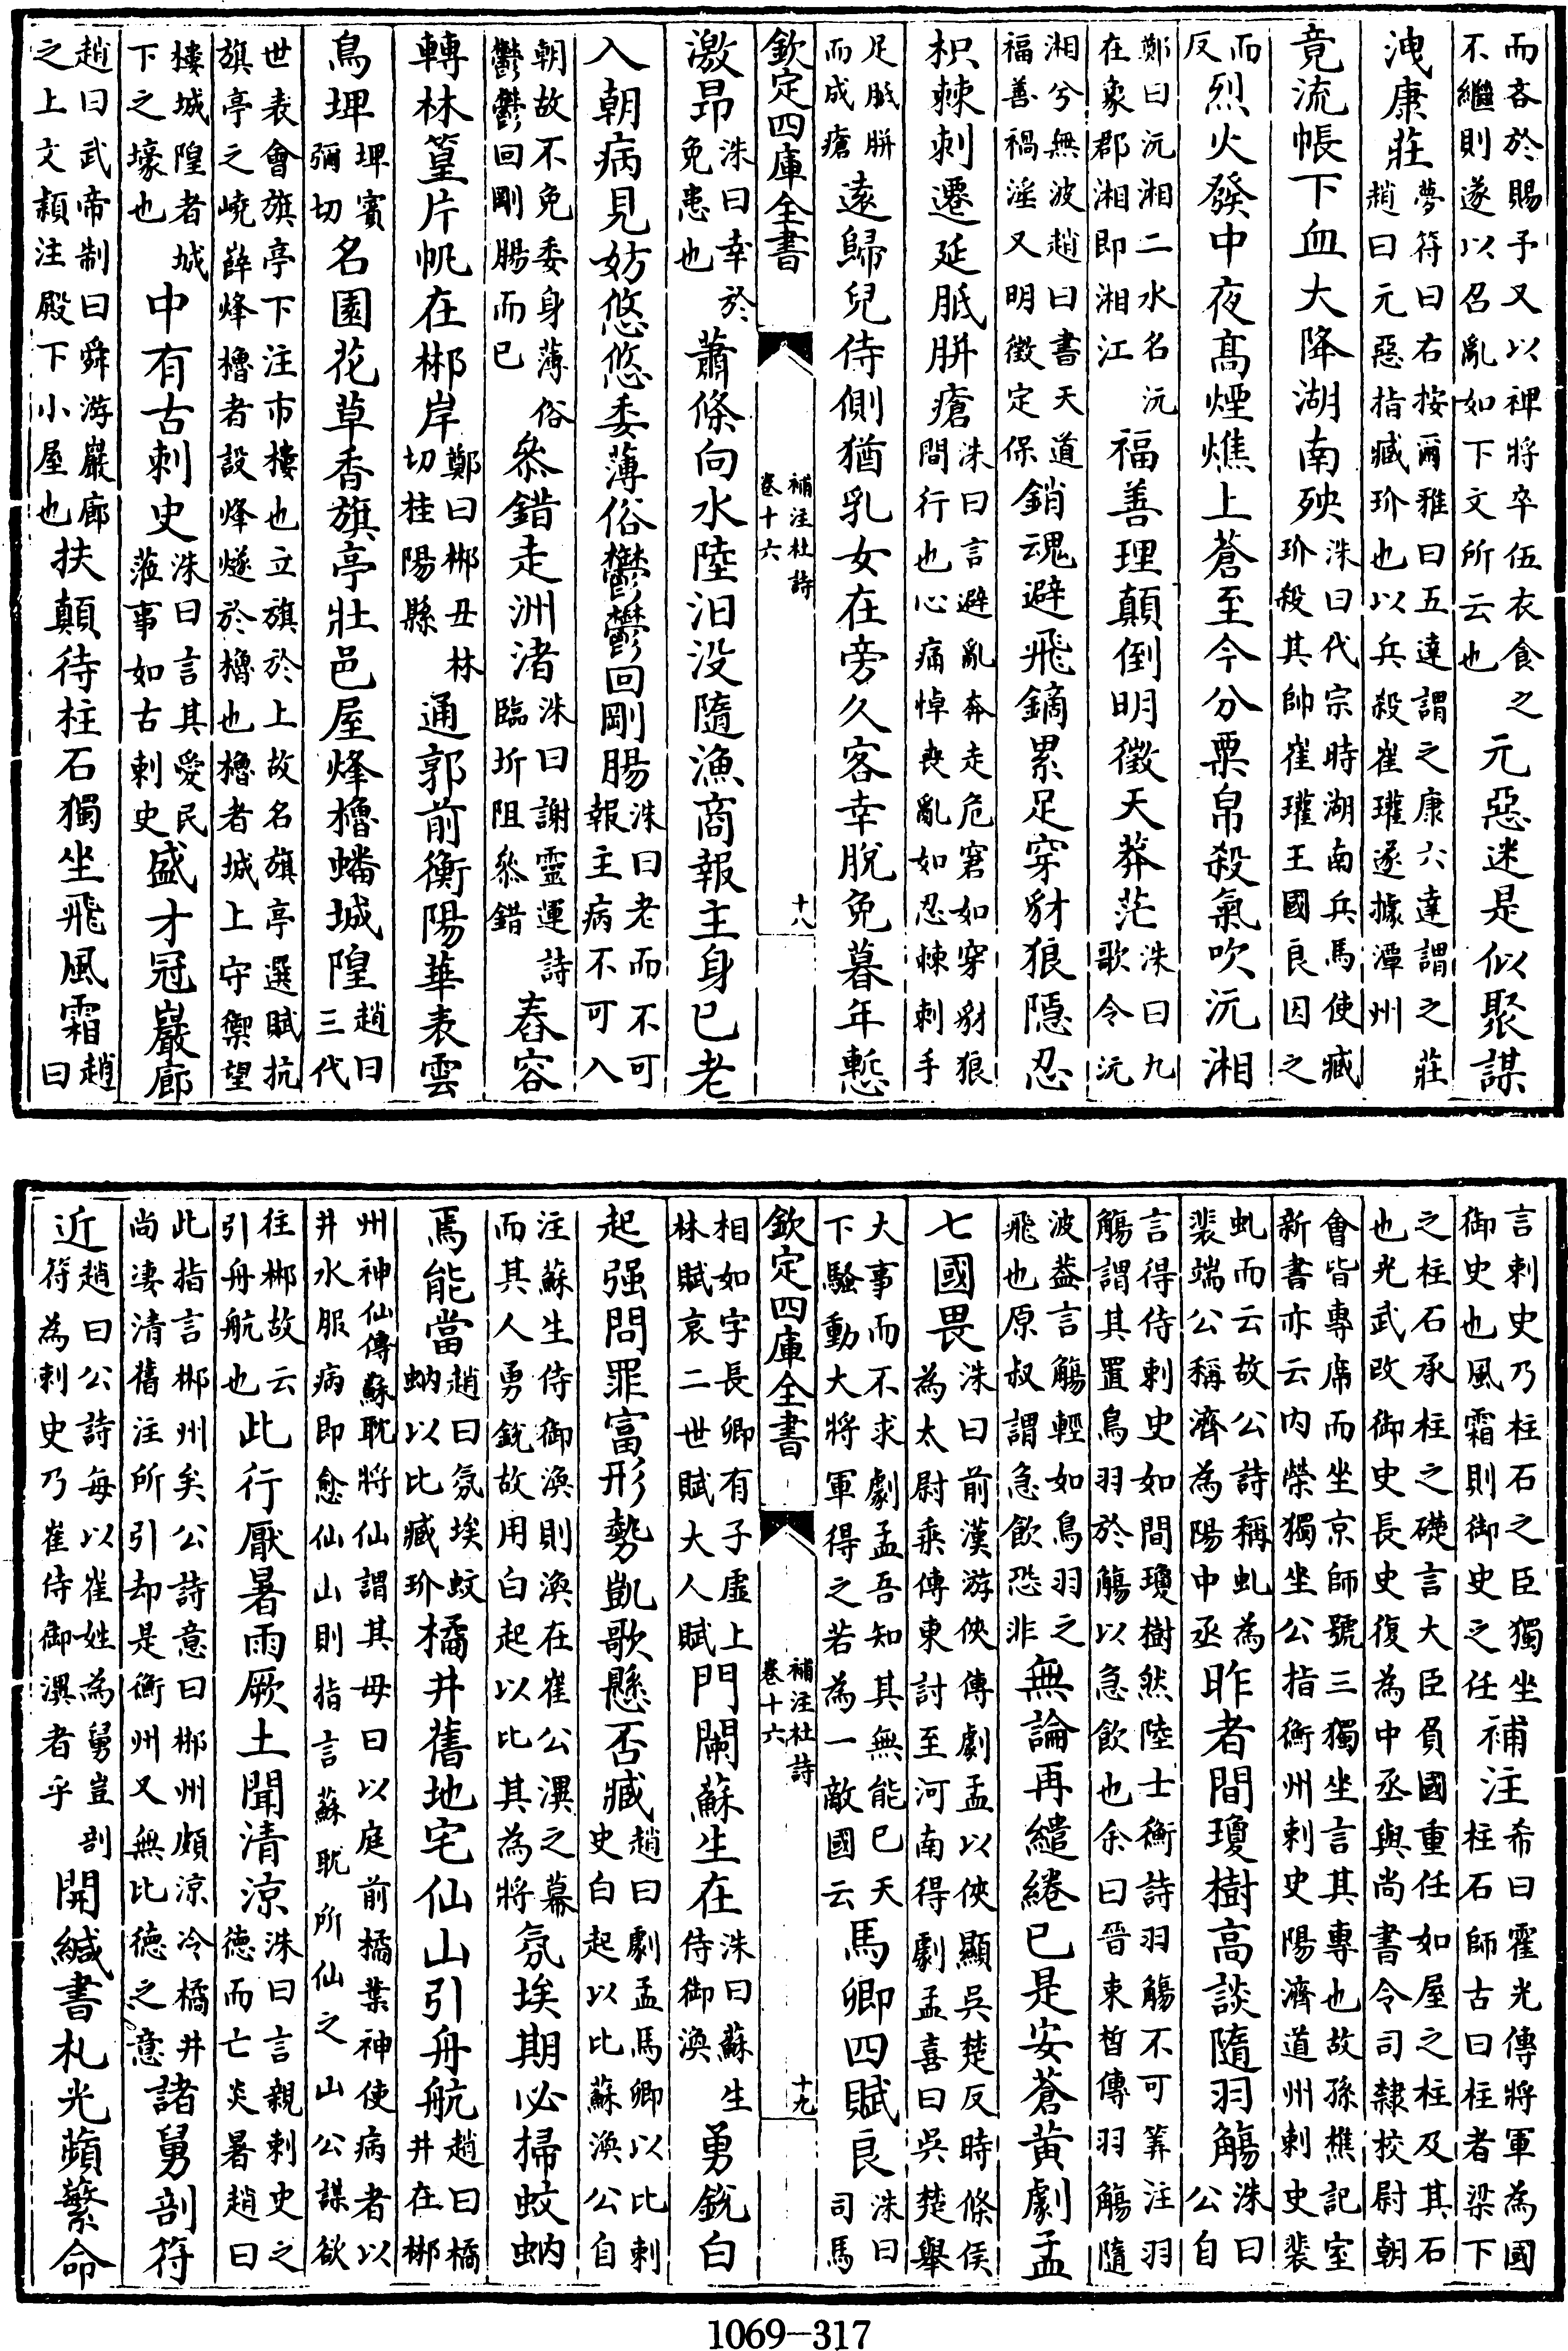 而吝於賜予又以裨將卒伍衣食之
不繼則遂以召亂如下文所云也
元惡迷是似聚謀
洩康莊
夢符曰右按爾雅曰五達謂之康六達謂之莊
趙曰元惡指臧玠也以兵殺崔瓘遂據潭州
竟流帳下血大降湖南殃
洙曰代宗時湖南兵馬使臧
玠殺其帥崔瓘王國良因之
而
反
烈火發中夜高煙燋上蒼至今分粟帛殺氣吹沅湘
鄭曰沅湘二水名沅
在象郡湘即湘江
福善理顛倒明徵天莽茫
洙曰九
歌令沅
湘兮無波趙曰書天道
福善禍淫又明徵定保
銷魂避飛鏑累足穿豺狼隱忍
枳棘刺遷延胝胼瘡
洙曰言避亂奔走危窘如穿豺狼
間行也心痛悼喪亂如忍棘刺手
足胝胼
而成瘡
遠歸兒侍側猶乳女在旁久客幸脫免暮年慙
欽定四庫全書
補注杜詩
卷十六
十八
激昂
洙曰幸於
免患也
蕭條向水陸汩没隨漁商報主身已老
入朝病見妨悠悠委薄俗鬱鬱回剛腸
洙曰老而不可
報主病不可入
朝故不免委身薄俗
鬱鬱回剛腸而已
叅錯走洲渚
洙曰謝靈運詩
臨圻阻叅錯
舂容
轉林篁片帆在郴岸
鄭曰郴丑林
切桂陽縣
通郭前衡陽華表雲
鳥埤
埤賓
彌切
名園花草香旗亭壯邑屋烽櫓蟠城隍
趙曰
三代
世表會旗亭下注市樓也立旗於上故名旗亭選賦抗
旗亭之嶢薛烽櫓者設烽燧於櫓也櫓者城上守禦望
樓城隍者城
下之壕也
中有古刺史
洙曰言其愛民
涖事如古刺史
盛才冠巖廊
趙曰武帝制曰舜游巖廊
之上文穎注殿下小屋也
扶顛待柱石獨坐飛風霜
趙
曰
言刺史乃柱石之臣獨坐
御史也風霜則御史之任
補注
希曰霍光傳將軍為國
柱石師古曰柱者梁下
之柱石承柱之礎言大臣負國重任如屋之柱及其石
也光武改御史長史復為中丞與尚書令司隸校尉朝
會皆專席而坐京師號三獨坐言其專也故孫樵記室
新書亦云内榮獨坐公指衡州刺史陽濟道州刺史裴
虬而云故公詩稱虬為
裴端公稱濟為陽中丞
昨者間瓊樹高談隨羽觴
洙曰
公自
言得侍刺史如間瓊樹然陸士衡詩羽觴不可筭注羽
觴謂其置鳥羽於觴以急飲也余曰晉束晳傳羽觴隨
波葢言觴輕如鳥羽之
飛也原叔謂急飲恐非
無論再繾綣已是安蒼黄劇孟
七國畏
洙曰前漢游俠傳劇孟以俠顯吳楚反時條侯
為太尉乘傳東討至河南得劇孟喜曰吳楚舉
大事而不求劇孟吾知其無能已天
下騷動大將軍得之若為一敵國云
馬卿四賦良
洙曰
司馬
欽定四庫全書
補注杜詩
卷十六
十九
相如字長卿有子虛上
林賦哀二世賦大人賦
門闌蘇生在
洙曰蘇生
侍御渙
勇銳白
起强問罪富形勢凱歌懸否臧
趙曰劇孟馬卿以比刺
史白起以比蘇渙公自
注蘇生侍御渙則渙在崔公潩之幕
而其人勇銳故用白起以比其為將
氛埃期必掃蚊蚋
焉能當
趙曰氛埃蚊
蚋以比臧玠
橘井舊地宅仙山引舟航
趙曰橘
井在郴
州神仙傳蘇耽將仙謂其母曰以庭前橘葉神使病者以
井水服病即愈仙山則指言蘇耽所仙之山公謀欲
往郴故云
引舟航也
此行厭暑雨厥土聞清涼
洙曰言親刺史之
德而亡炎暑趙曰
此指言郴州矣公詩意曰郴州頗涼冷橘井
尚凄清舊注所引却是衡州又無比德之意
諸舅剖符
近
趙曰公詩每以崔姓為舅豈剖
符為刺史乃崔侍御潩者乎
開緘書札光蘋蘩命
1069-317